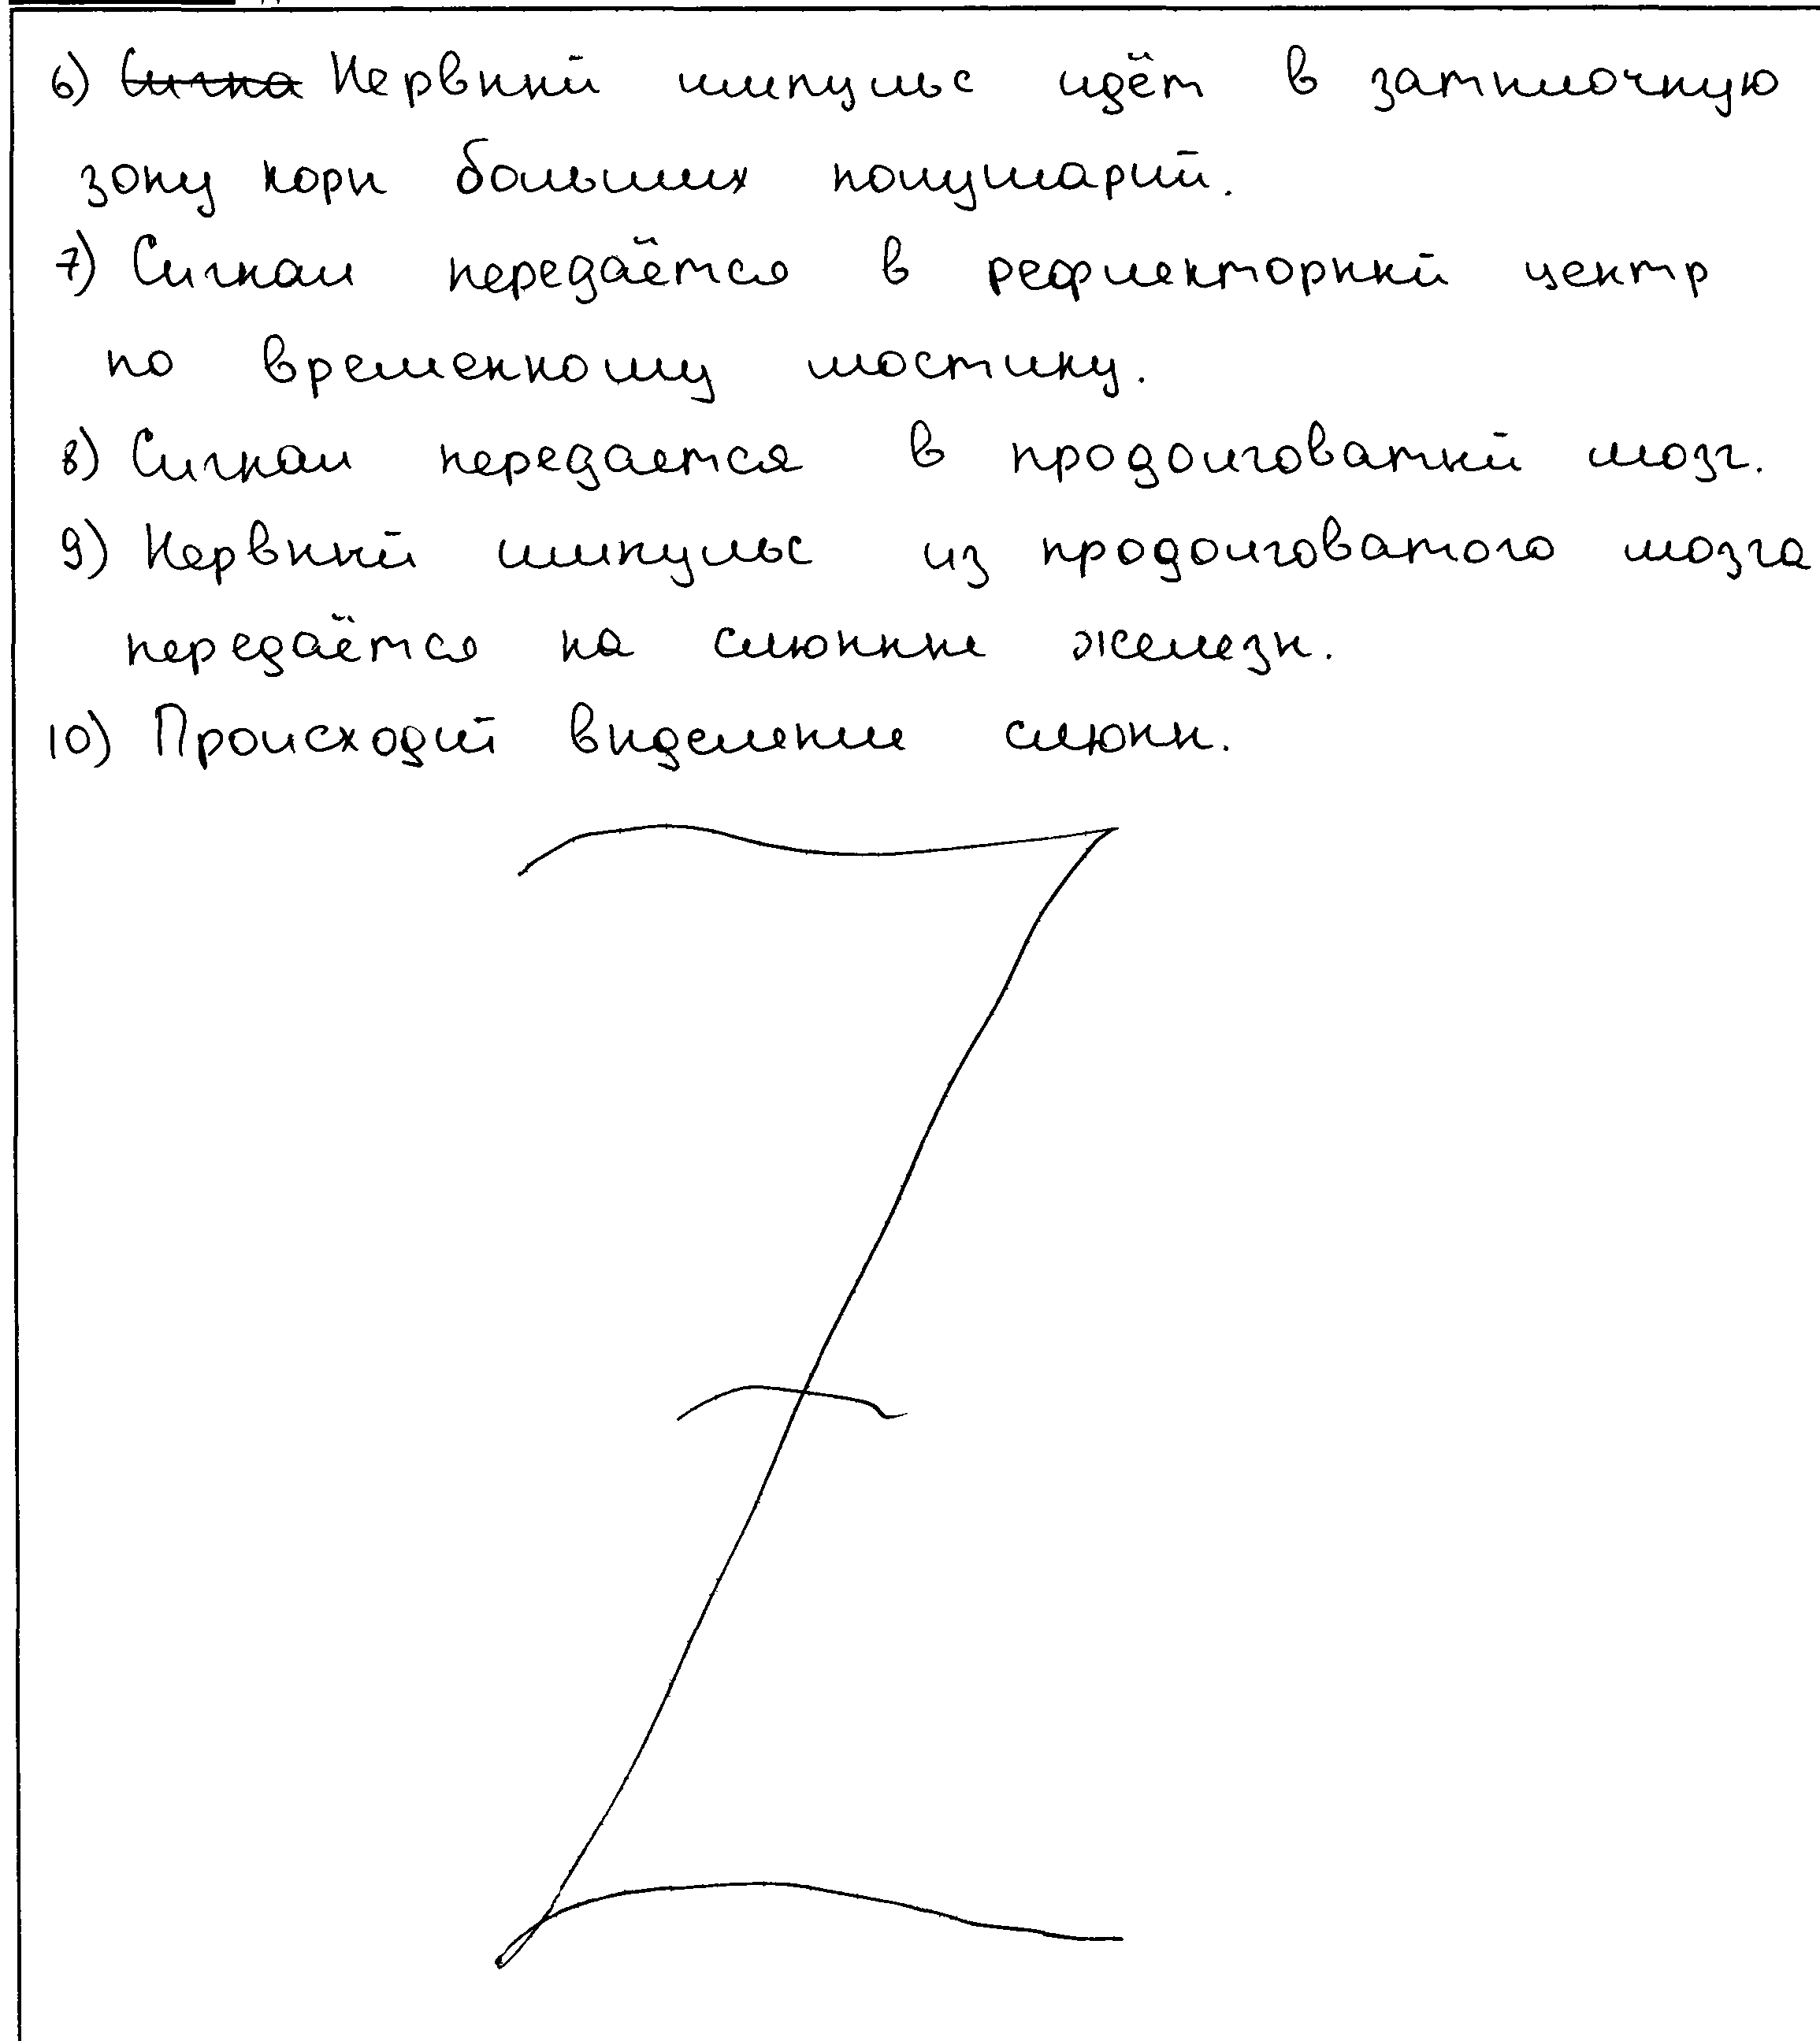 6) Сигна Нервный импульс идёт в затылочную
зону коры больших полушарий.
7) Сигнал передаётся в рефлекторный центр
по временному мостику.
8) Сигнал передается в продолговатый мозг.
9) Нервный импульс из продолговатого мозга
передаётся на слюнные железы.
10) Происходит выделение слюны.